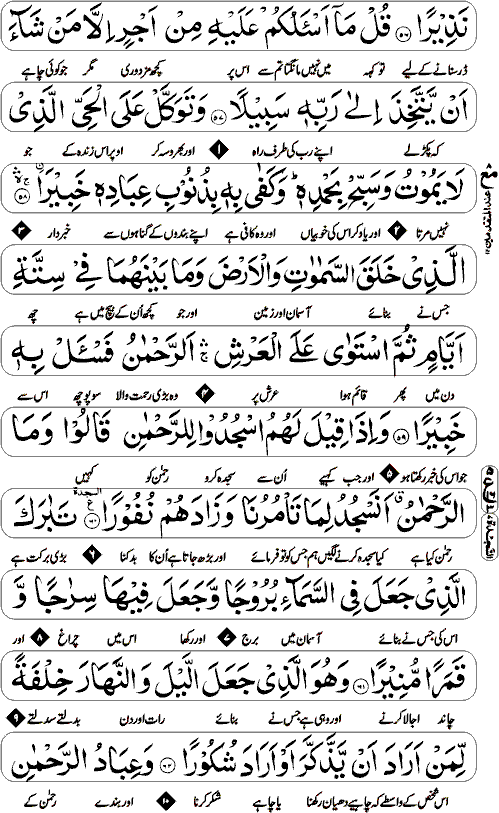 نَذِيْرًا ﴿۵۶﴾ قُلْ مَاۤ اَسْـَٔلُكُمْ عَلَيْهِ مِنْ اَجْرٍ اِلَّا مَنْ شَآءَ
ڈر سنانے کے لیے تو کہہ میں نہیں مانگتا تم سے اس پر کچھ مزدوری مگر جو کوئی چاہے
اَنْ يَّتَّخِذَ اِلٰى رَبِّهٖ سَبِيْلًا ﴿۵۷﴾ وَتَوَكَّلْ عَلَى الْحَيِّ الَّذِيْ
کہ پکڑ لے اپنے رب کی طرف راہ ۱ اور بھروسہ کر اوپر اس زندہ کے جو
لَا يَمُوْتُ وَسَبِّحْ بِحَمْدِهٖ ؕ وَكَفٰى بِهٖ بِذُنُوْبِ عِبَادِهٖ خَبِيْرًا ﴿۵۸﴾
نہیں مرتا ۲ اور یاد کر اس کی خوبیاں اور وہ کافی ہے اپنے بندوں کے گناہوں سے خبردار ۳
الَّذِيْ خَلَقَ السَّمٰوٰتِ وَالْاَرْضَ وَمَا بَيْنَهُمَا فِيْ سِتَّةِ
جس نے بنائے آسمان اور زمین اور جو کچھ اُن کے بیچ میں ہے چھ
اَيَّامٍ ثُمَّ اسْتَوٰى عَلَى الْعَرْشِ ۛۚ اَلرَّحْمٰنُ فَسْـَٔلْ بِهٖ
دن میں پھر قائم ہوا عرش پر ۴ وہ بڑی رحمت والا سو پوچھ اس سے
خَبِيْرًا ﴿۵۹﴾ وَاِذَا قِيْلَ لَهُمُ اسْجُدُوْا لِلرَّحْمٰنِ قَالُوْا وَمَا
جو اس کی خبر رکھتا ہو ۵ اور جب کہیے اُن سے سجدہ کرو رحمٰن کو کہیں
الرَّحْمٰنُ ۗ اَنَسْجُدُ لِمَا تَاْمُرُنَا وَزَادَهُمْ نُفُوْرًا ﴿۶۰﴾ تَبٰرَكَ
رحمٰن کیا ہے کیا سجدہ کرنے لگیں ہم جس کو تو فرمائے اور بڑھ جاتا ہے اُن کا بدکنا ۶ بڑی برکت ہے
الَّذِيْ جَعَلَ فِي السَّمَآءِ بُرُوْجًا وَّجَعَلَ فِيْهَا سِرٰجًا وَّ
اس کی جس نے بنائے آسمان میں برج ۷ اور رکھا اس میں چراغ ۸ اور
قَمَرًا مُّنِيْرًا ﴿۶۱﴾ وَهُوَ الَّذِيْ جَعَلَ الَّيْلَ وَالنَّهَارَ خِلْفَةً
چاند اجالا کرنے اور وہی ہے جس نے بنائے رات اور دن بدلتے سدلتے ۹
لِّمَنْ اَرَادَ اَنْ يَّذَّكَّرَ اَوْ اَرَادَ شُكُوْرًا ﴿۶۲﴾ وَعِبَادُ الرَّحْمٰنِ
اس شخص کے واسطے کہ چاہے دھیان رکھنا یا چاہے شکر کرنا ۱۰ اور بندے رحمٰن کے